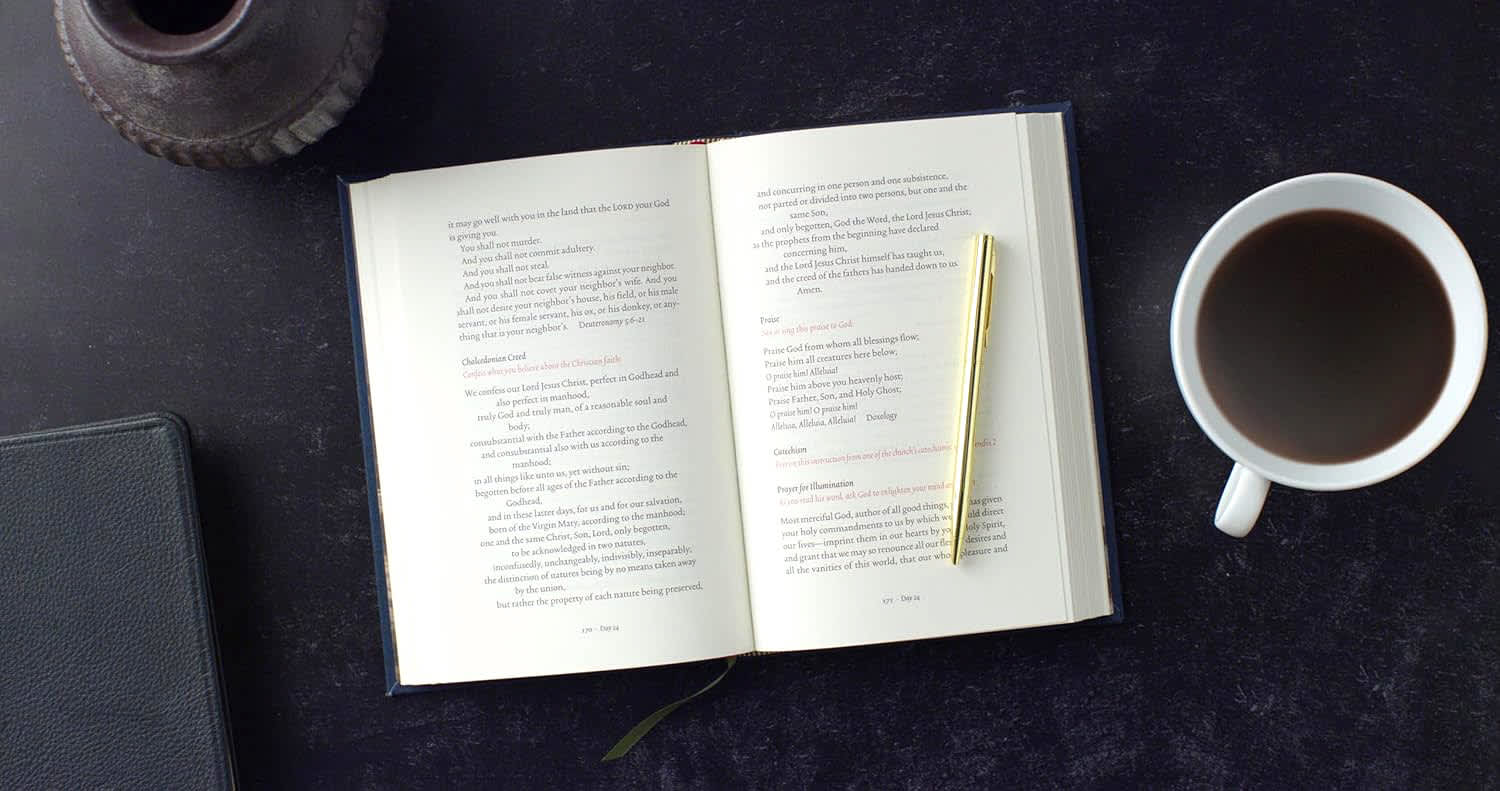 it may go well with you in the land that the LORD your God
is giving you.
You shall not murder.
And you shall not commit adultery.
And you shall not steal.
And you shall not bear false witness against your neighbor.
And you shall not covet your neighbor's wife. And you
shall not desire your neighbor's house, his field, or his male
servant, or his female servant, his ox, or his donkey, or any-
thing that is your neighbor's. Deuteronomy 5:6–21
Chalcedonian Creed
Confess what you believe about the Christian faith.
We confess our Lord Jesus Christ, perfect in Godhead and
also perfect in manhood,
truly God and truly man, of a reasonable soul and
body;
consubstantial with the Father according to the Godhead,
and consubstantial also with us according to the
manhood;
in all things like unto us, yet without sin;
begotten before all ages of the Father according to the
Godhead,
and in these latter days, for us and for our salvation,
born of the Virgin Mary, according to the manhood;
one and the same Christ, Son, Lord, only begotten,
to be acknowledged in two natures,
inconfusedly, unchangeably, indivisibly, inseparably,
the distinction of natures being by no means taken away
by the union,
but rather the property of each nature being preserved,
170 – Day 24
and concurring in one person and one subsistence,
not parted or divided into two persons, but one and the
same Son,
and only begotten, God the Word, the Lord Jesus Christ;
as the prophets from the beginning have declared
concerning him,
and the Lord Jesus Christ himself has taught us,
and the creed of the fathers has handed down to us.
Amen.
Praise
Say or sing this praise to God.
Praise God from whom all blessings flow;
Praise him all creatures here below;
O praise him! Alleluia!
Praise him above you heavenly host;
Praise Father, Son, and Holy Ghost;
O praise him! O praise him!
Alleluia, Alleluia, Alleluia! Doxology
Catechism
Receive this instruction from one of the church's catechisms. 2
Prayer for Illumination
As you read his word, ask God to enlighten your mind
Most merciful God, author of all good things, has given
your holy commandments to us by which we direct
our lives—imprint them in our hearts by Holy Spirit,
and grant that we may so renounce all our desires and
all the vanities of this world, that our pleasure and
171 – Day 24